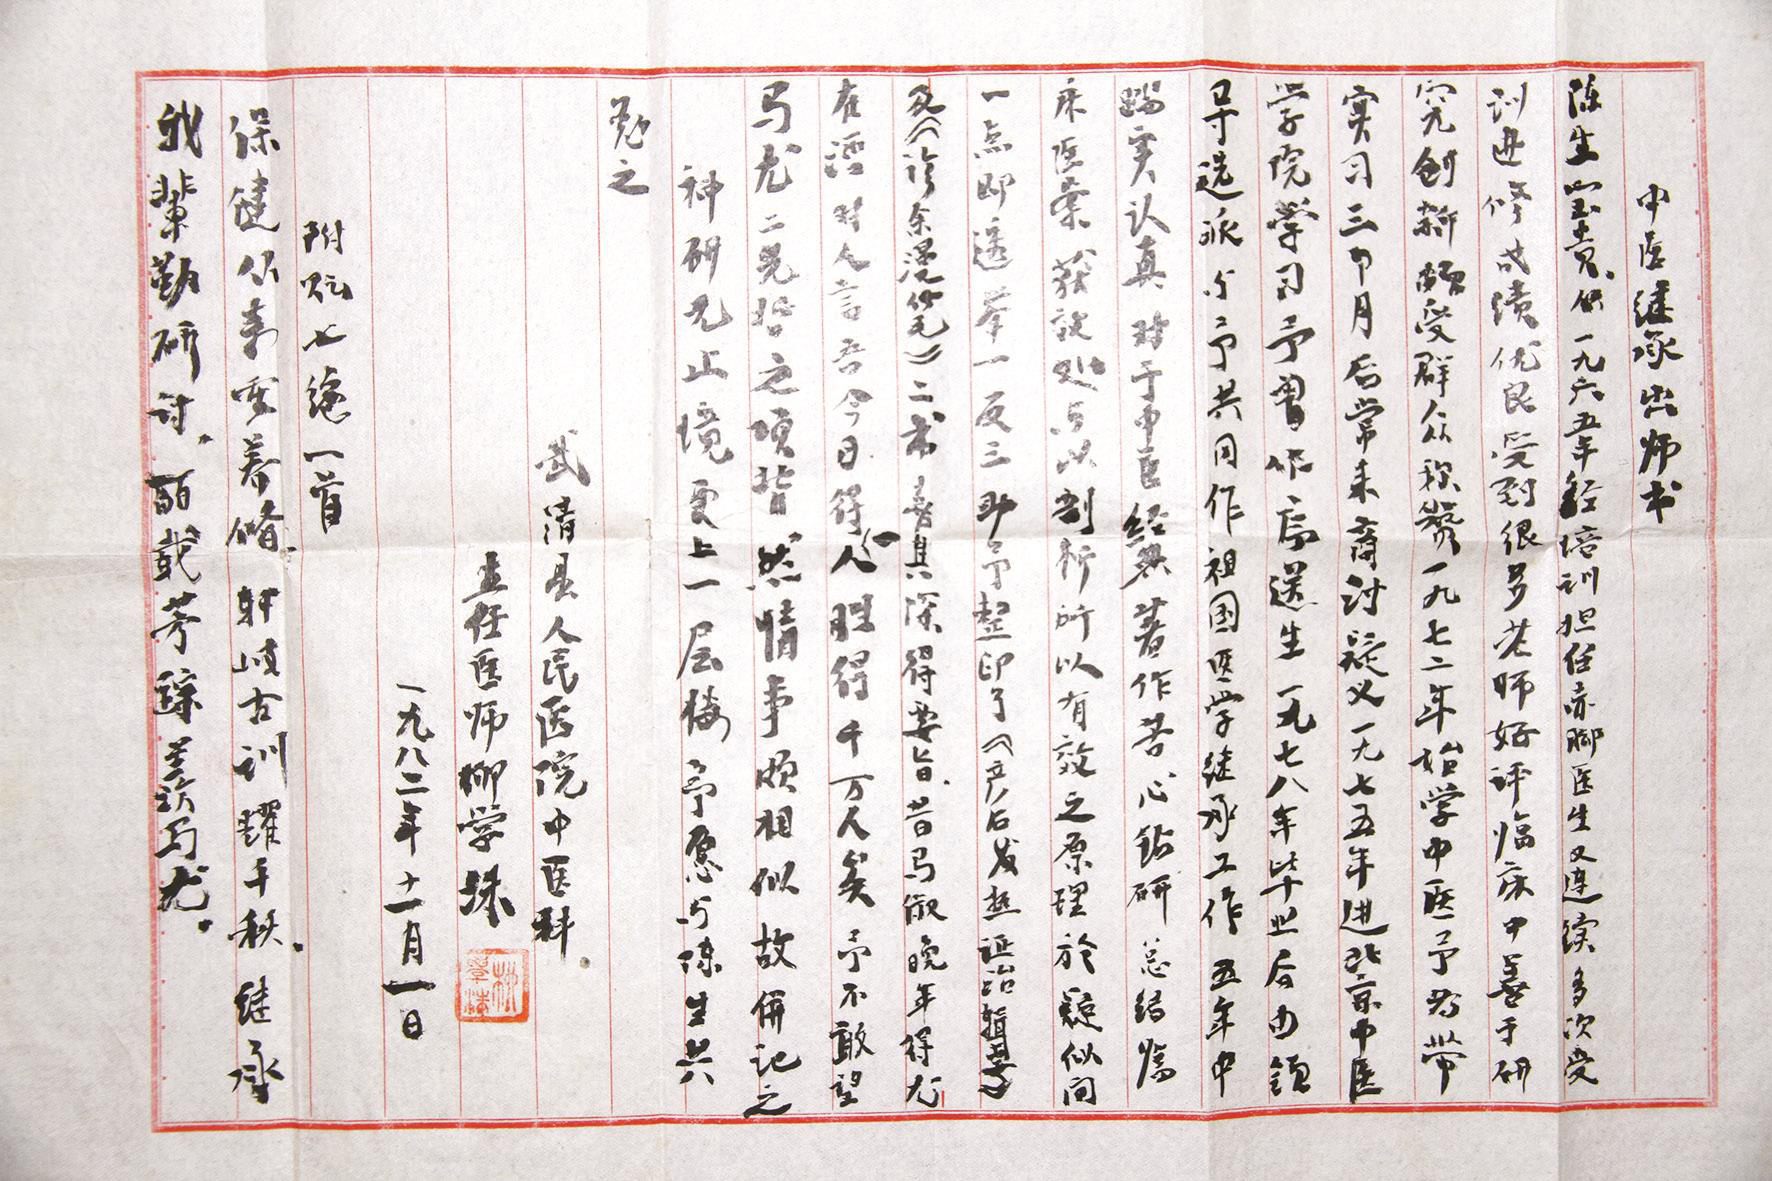 中医继承出师书
陈生宝贵.供一九六五年经培训担任赤脚医生又连续多次受
训进修成绩优良受到很多老师好评临床中善于研
究创新颇受群众称赞一九七二年始学中医予为带
实习三个月后常来商讨疑义一九七五年进北京中医
学院学习予曾作序送生一九七八年毕业后由领
导选派与予共同作祖国医学继承工作五年中
踏实认真对于中医经典著作苦心钻研总结临
床医案获效处与以剖析所以有效之原理於疑似间
一点即透举一反三助予整印了《产后发热证治辑要》
及《诊余漫笔》二书喜其深得要旨.昔马俶晚年得尤
在泾对人言吾今日得一人胜得千万人矣予不敢望
马尤二先哲之项背然情事颇相似故併记之
神研无止境更上一层楼予愿与陈生共
勉之
武清县人民医院中医科.
主任医师柳学洙
一九八二年十一月一日
附贶七绝一首
保健仙事重养脩.轩岐古训耀千秋.继承
我辈勤研讨.酉载芳踪羡马尤.